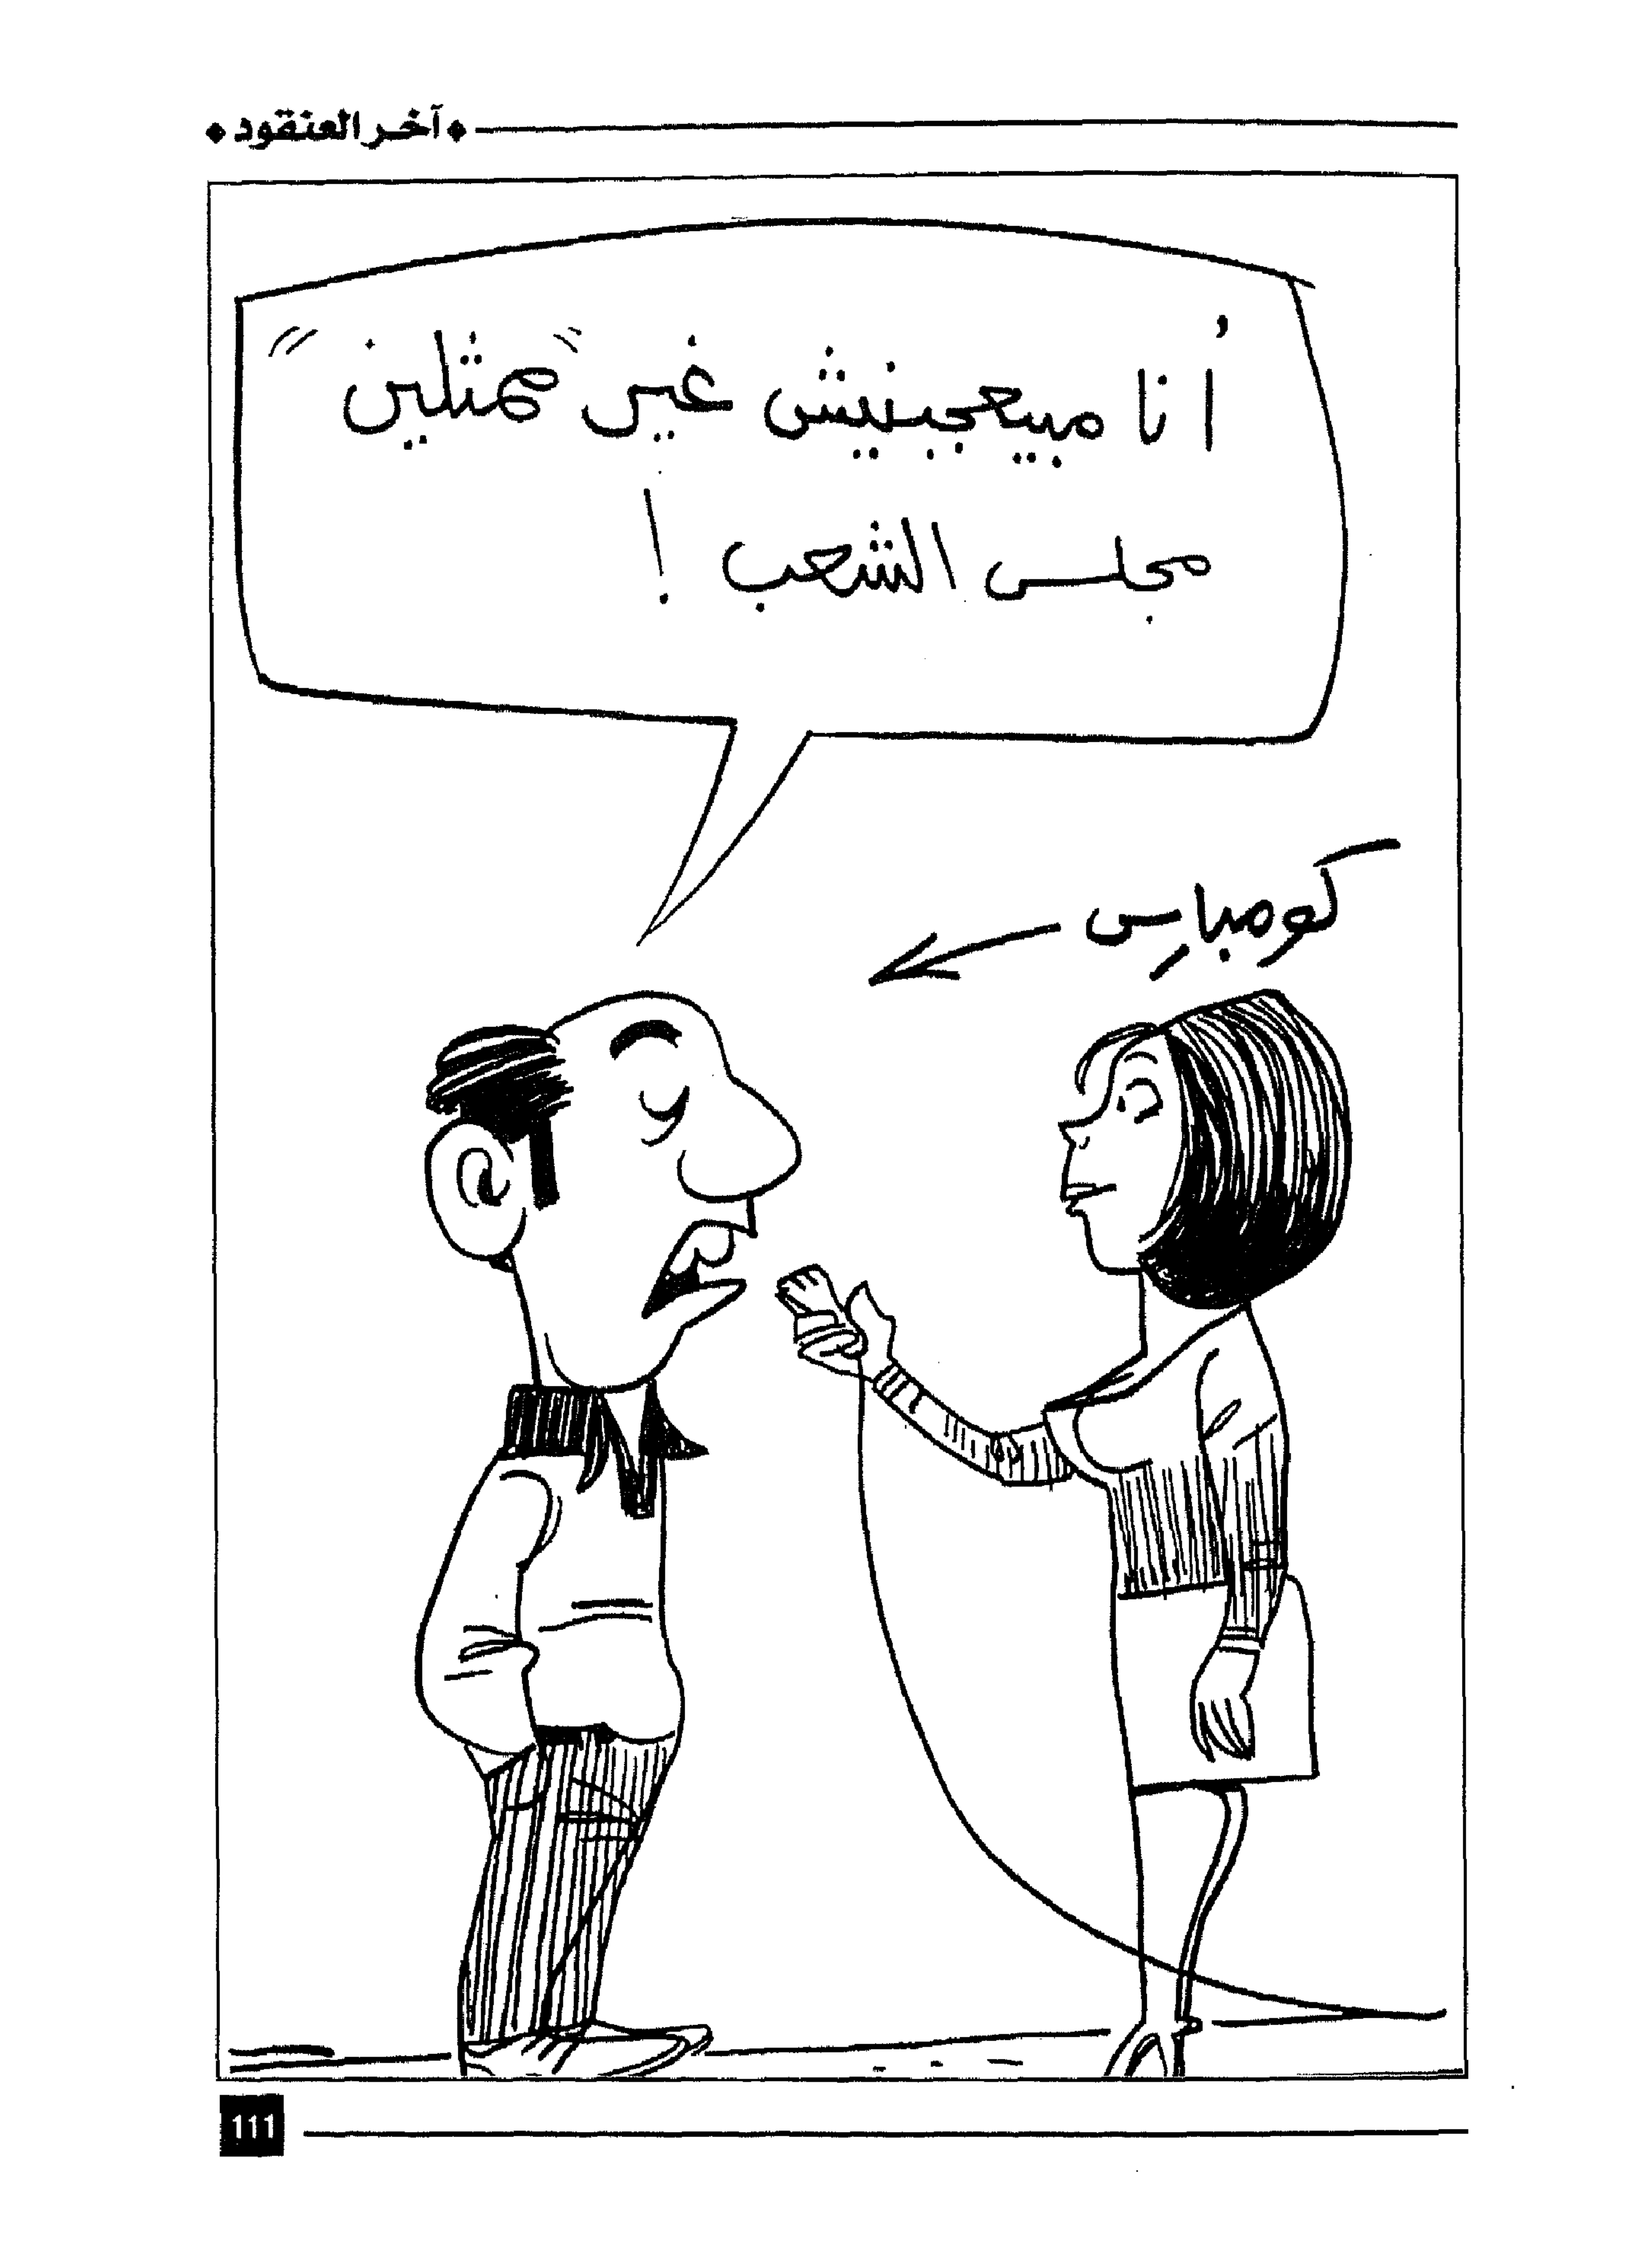 آخر العنقود
أنا مبيعجبنيش غير "ممثلين"
مجلس الشعب !
كومبارس
111